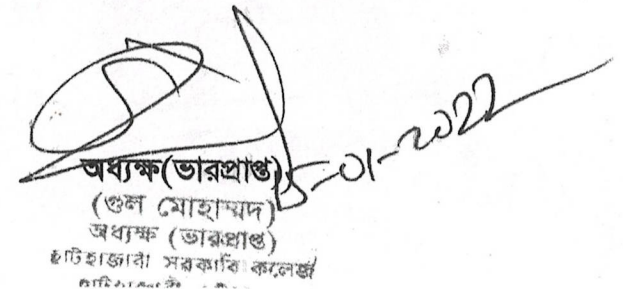 অধ্যক্ষ(ভারপ্রাপ্ত)
15-01-2022
(গুল মোহাম্মদ)
অধ্যক্ষ (ভারপ্রাপ্ত)
হাটহাজারী সরকারি কলেজ